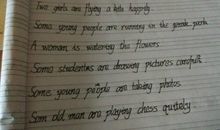 Two girls are flying a kite happily.
Some young people are running in the park.
A woman is watering the flowers
Some students are drawing pictures
Some young people are taking photos
Som old man are playing chess quitely